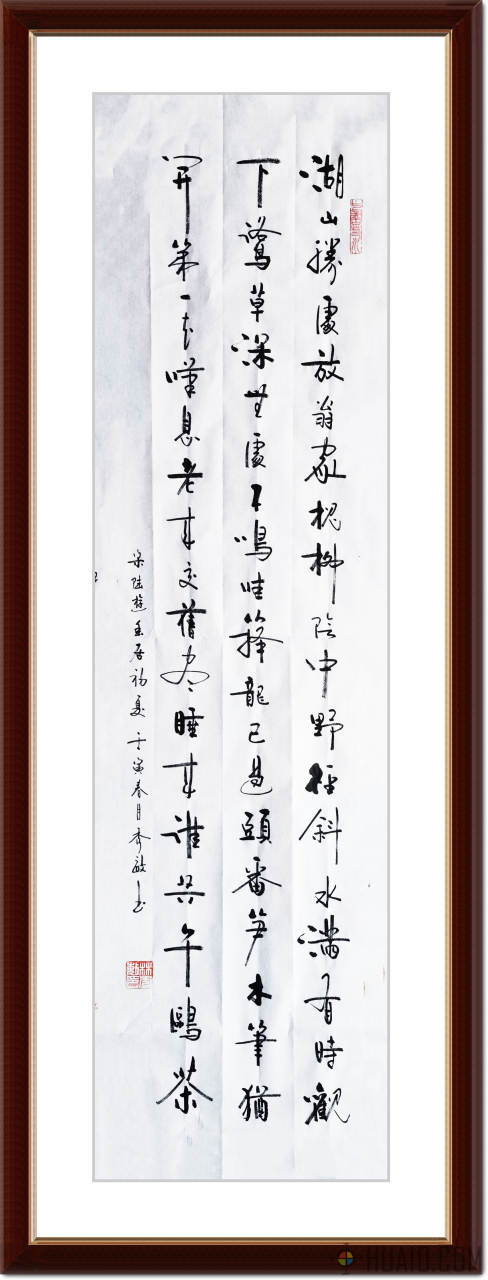 湖山勝處放翁家槐柳陰中野徑斜水滿有時觀
下鷺草深無處不鳴哇箨龍已過頭番笋木筆猶
開第一花嘆息老來交舊盡睡來誰共午鷗茶
宋陸遊幽居初夏 壬寅春月 敏书